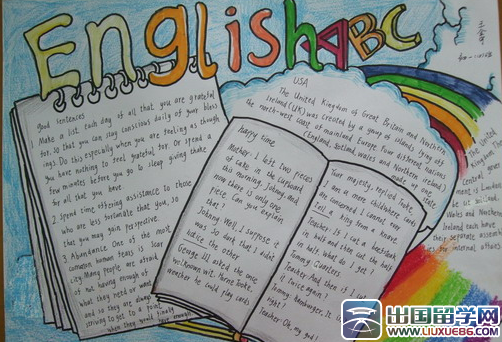 English ABC
good sentences
Make a list each day of all that you are grateful
for, so that you can stay conscious daily of your bless
ings. Do this especially when you are feeling as though
you have nothing to feel grateful for. Or spend a
few minutes before you go to sleep giving thanks
for all that you have.
2 spend time offering assistance to those
who are less fortunate than you, so
that you may gain perspective.
3 Abundance One of the most
common human fears is scar
city Many people are afraid
of not having enough of
what they need or want
and so they are always
striving to get to a point
when they would finally have enough
happy time
Mother: I left two pieces
of cake in the cupboard
this morning, Johnny, and
now there is only one
piece. Can you explain
that?
Johnny: Well, I suppose it
was so dark that I didn't
notice the other
George III asked the
well-known wit, Horne Tooke,
weather he could play cards
Your majesty, replied Tooke,
I am a mere child where cards
are concerned. I cannot even
tell a king from a knave.
Teacher: If I cut a beefsteak
in half and then cut the half
in half, what do I get?
Tommy: Quarters
Teacher: And then if I cut
it twice again?
Tommy: hamburger,
Teacher: Oh, my god!
USA
The United Kingdom of Great Britain and Northern
Ireland (UK) was created by a group of islands lying off
the north-west coast of mainland Europe. Four different nations
(England, Scotland, Wales and Northern Ireland)
made up one
state
The United
central
ment is
Wales and
Northern
Ireland each have
their separate
for internal affairs
出国留学网
www.liuxue86.com